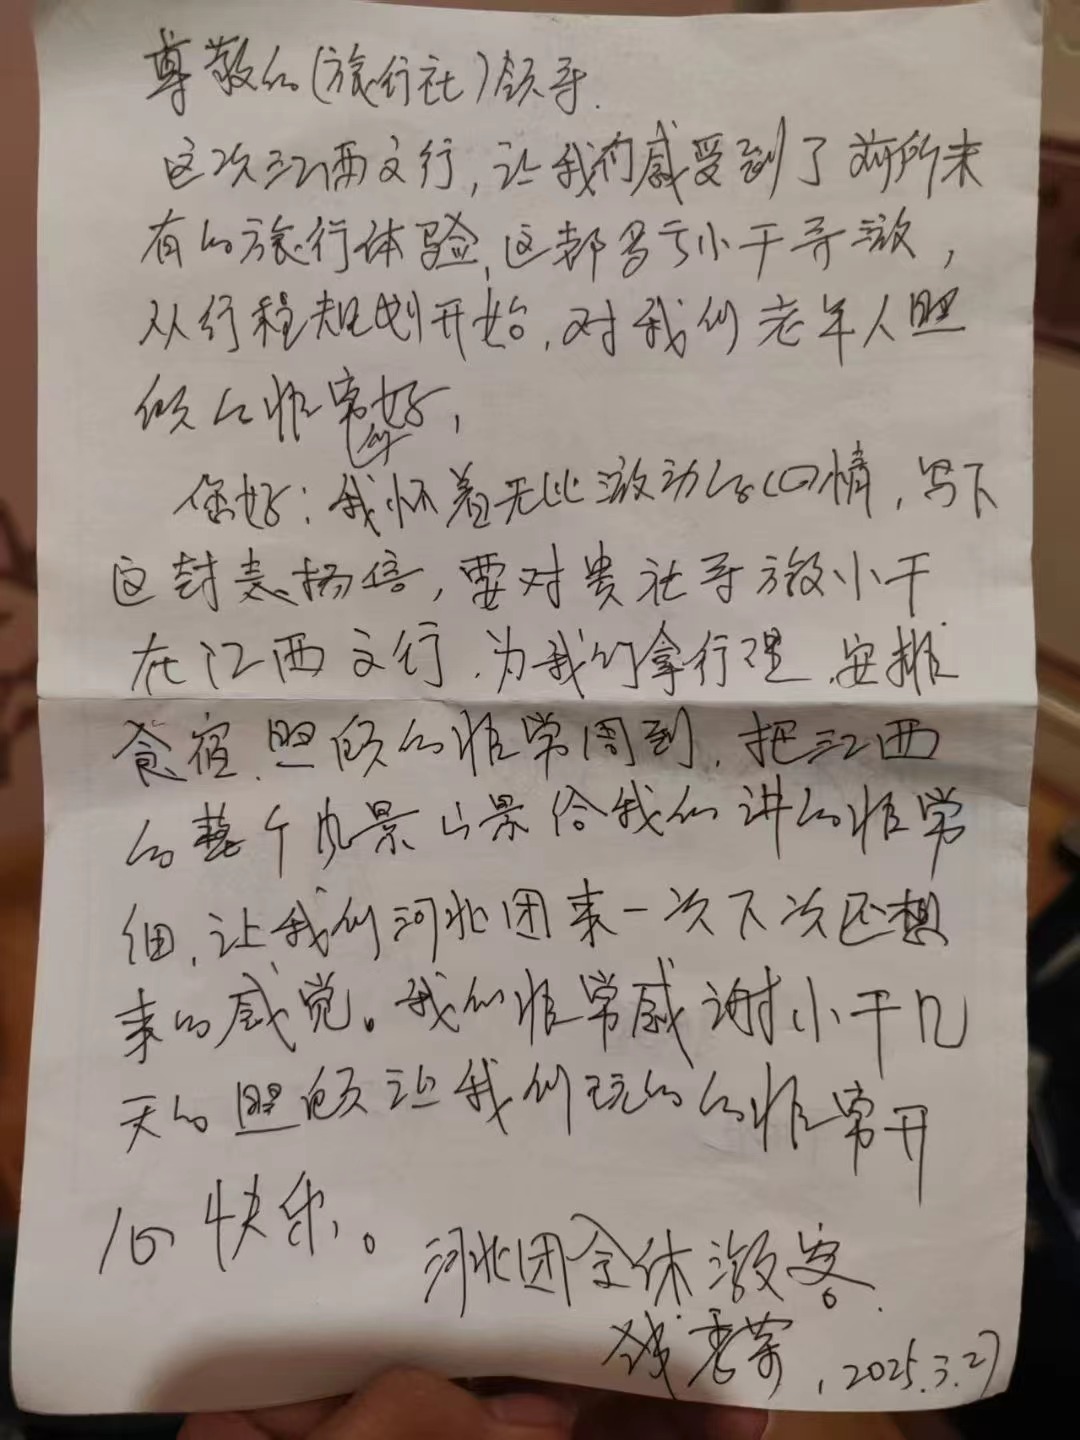 尊敬的(旅行社)领导.
这次江西之行,让我们感受到了前所未
有的旅行体验,这都多亏小干导游,
从行程规划开始,对我们老年人照
顾的非常好,
您好:我怀着无比激动的心情,写下
这封表扬信,要对贵社导游小干
在江西之行,为我们拿行理,安排
食宿,照顾的非常周到,把江西
的整个风景山景给我们讲的非常
细,让我们河北团来一次下次还想
来的感觉。我们非常感谢小干几
天的照顾让我们玩的的非常开
心快乐。
河北团全体游客.
钱秀荣,2025.3.27